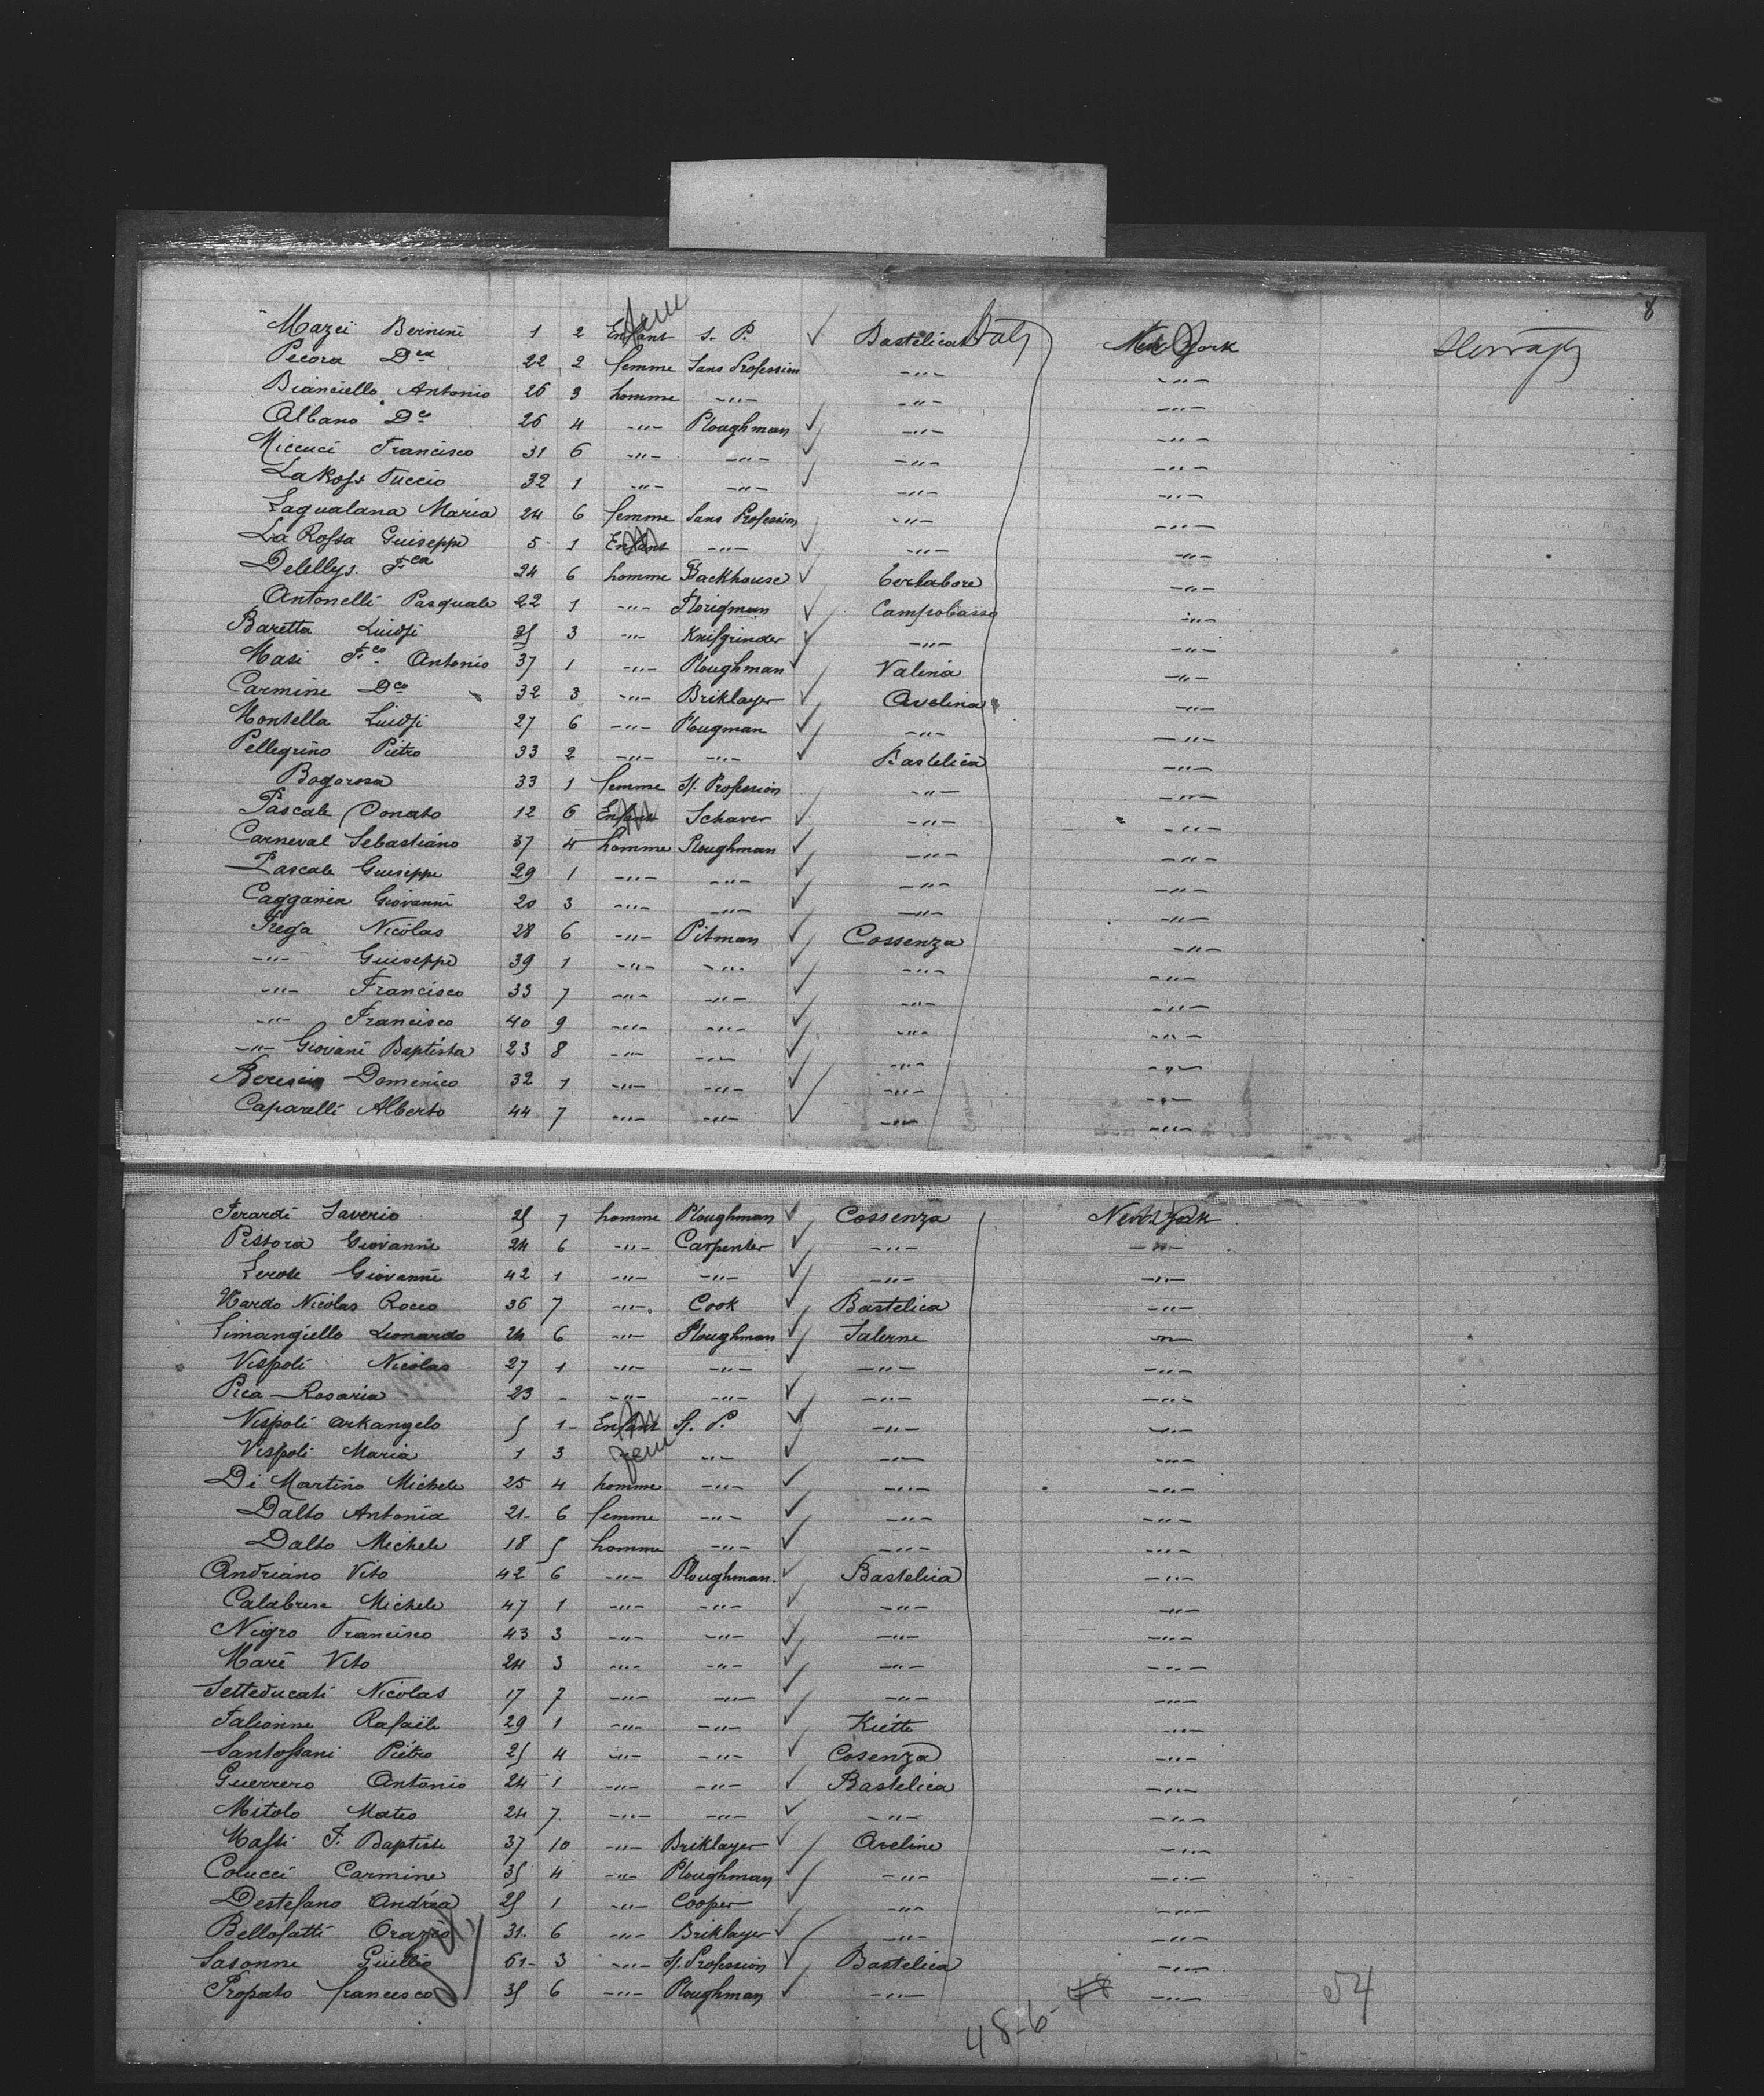 8
Mazei Bernini 1 2 Enfant fem S. P. ✓ Bastelica Italy New York Steerage
Pecora Dca 22 2 femme Sans Profession -"- -"-
Bianciello Antonio 26 3 homme -"- -"- -"-
Albano Dco 26 4 -"- Ploughman ✓ -"- -"-
Miccuci Francisco 31 6 -"- -"- ✓ -"- -"-
La Ross Tuccio 32 1 -"- -"- ✓ -"- -"-
Laqualana Maria 24 6 femme Sans Profession -"- -"-
La Rossa Guiseppe 5 1 Enfant -"- ✓ -"- -"-
Delellys. Fca 24 6 homme Backhouse ✓ Terlabore -"-
Antonelli Pasquale 22 1 -"- Florigman ✓ Campobasso -"-
Baretta Luidji 25 3 -"- Knifgrinder ✓ -"- -"-
Masi Fco Antonio 37 1 -"- Ploughman ✓ Valenia -"-
Carmine Dco 32 3 -"- Briklayer ✓ Avelina -"-
Montella Luidji 27 6 -"- Plougman ✓ -"- -"-
Pellegrino Pietro 33 2 -"- -"- ✓ Bastelica -"-
Bogorosa 33 1 femme S/. Profession -"- -"-
Pascale Donato 12 6 Enfant Schaver ✓ -"- -"-
Carneval Sebastiano 37 4 homme Ploughman ✓ -"- -"-
Pascale Guiseppe 29 1 -"- -"- ✓ -"- -"-
Caggania Giovanni 20 3 -"- -"- ✓ -"- -"-
Frega Nicolas 28 6 -"- Pitman ✓ Cossenza -"-
-"- Guiseppe 39 1 -"- -"- ✓ -"- -"-
-"- Francisco 33 7 -"- -"- ✓ -"- -"-
-"- Francisco 40 9 -"- -"- ✓ -"- -"-
-"- Giovani Baptista 23 8 -"- -"- ✓ -"- -"-
Domenico 32 1 -"- -"- ✓ -"- -"-
Caparelli Alberto 44 7 -"- -"- ✓ -"- -"-
Ferardi Saverio 25 7 homme Ploughman ✓ Cossenza New York
Pistora Giovanni 24 6 -"- Carpenter ✓ -"- -"-
Lerose Giovanni 42 1 -"- -"- ✓ -"- -"-
Nardo Nicolas Rocco 36 7 -"- Cook ✓ Bastelica -"-
Simangiello Leonardo 24 6 -"- Ploughman ✓ Salerne -"-
Vispoli Nicolas 27 1 -"- -"- ✓ -"- -"-
Pica Rosaria 23 - -"- -"- ✓ -"- -"-
Vispoli Arkangelo 5 1 Enfant S/. P. ✓ -"- -"-
Vispoli Maria 1 3 fem -"- ✓ -"- -"-
Di Martino Michele 25 4 homme -"- ✓ -"- -"-
Dalto Antonia 21 6 femme -"- ✓ -"- -"-
Dalto Michele 18 5 homme -"- ✓ -"- -"-
Andriano Vito 42 6 -"- Ploughman. ✓ Bastelica -"-
Calabrese Michele 47 1 -"- -"- ✓ -"- -"-
Nigro Francisco 43 3 -"- -"- ✓ -"- -"-
Mare Vito 24 3 -"- -"- ✓ -"- -"-
Setteducati Nicolas 17 7 -"- -"- ✓ -"- -"-
Falionne Rafaële 29 1 -"- -"- ✓ Kiette -"-
Santossani Piétro 25 4 -"- -"- ✓ Cosenza -"-
Guerrero Antonio 24 1 -"- -"- ✓ Bastelica -"-
Mitolo Mateo 24 7 -"- -"- ✓ -"- -"-
Massi F. Baptiste 37 10 -"- Briklayer ✓ Aveline -"-
Colucci Carmine 35 4 -"- Ploughman ✓ -"- -"-
Destefano Andréa 25 1 -"- Cooper ✓ -"- -"-
Bellofatti Orazio 31. 6 -"- Briklayer ✓ -"- -"-
Sasonne Guillio 61 3 -"- S/. Profession ✓ Bastelica -"-
Propato francesco 35 6 -"- Ploughman ✓ -"- -"- 54
48-6-